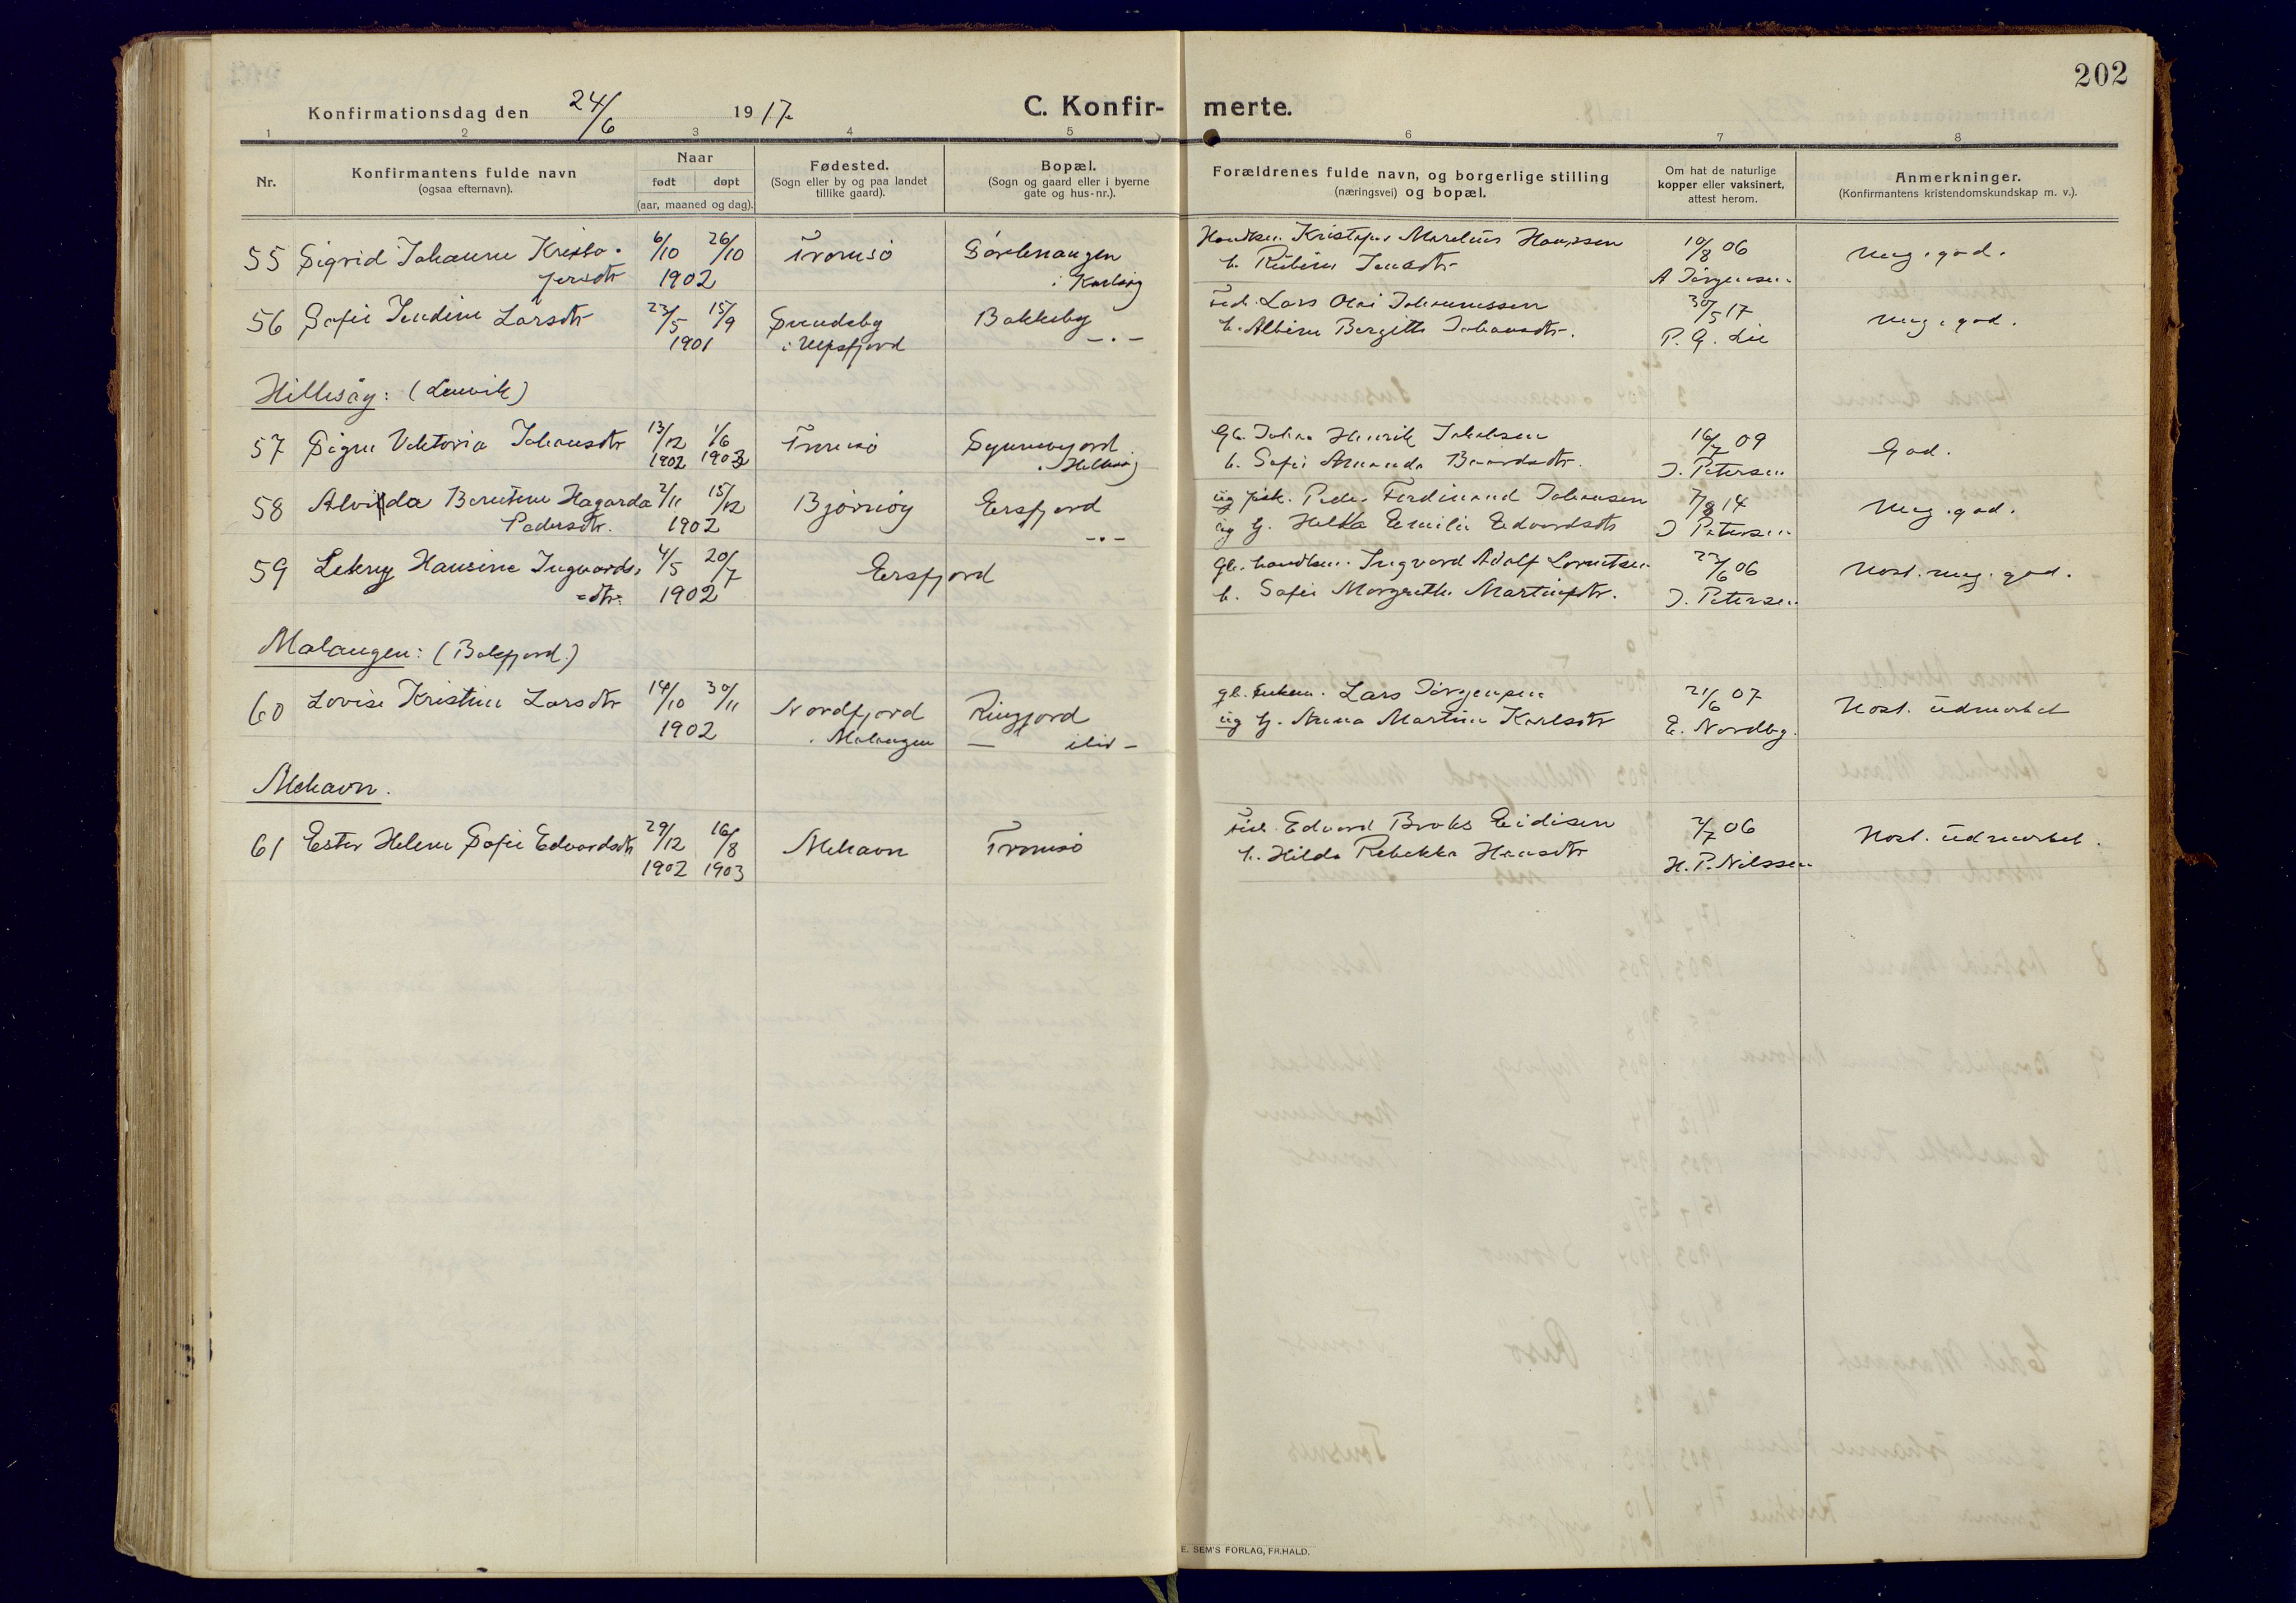 202
Konfirmationsdag den 24/6 1917.
C. Konfir- merte.
1 2 3 4 5 6 7 8
Nr.
Konfirmantens fulde navn
(ogsaa efternavn).
Naar
født døpt
(aar, maaned og dag).
Fødested.
(Sogn eller by og paa landet
tillike gaard).
Bopæl.
(Sogn og gaard eller i byerne
gate og hus-nr.).
Forældrenes fulde navn, og borgerlige stilling
(næringsvei) og bopæl.
Om hat de naturlige
kopper eller vaksinert,
attest herom.
Anmerkninger.
(Konfirmantens kristendomskundskap m. v.).
55 Sigrid Johanne Kristo- 6/10 26/10 Tromsö Kristofer Marelius 10/8 06 Meg. god.
fersdtr 1902 i Karlsøy A Jørgensen
56 Sofie Larsdtr 23/5 15/9 Bakkeby Lars Olai Johannessen 30/5 17 Meg. god.
1901 i Ulfsfjord -.- h. Albine Bergitte Johansdtr. P. G. Lie
Hillesøy: (Lenvik)
57 Signe Viktoria Johansdtr 13/12 1/6 Tromsö Johan Henrik 16/7 09 God.
1902 1903 h. Sofie Amanda J. Petersen
58 Alvilda Berntine Hagarda 2/11 15/12 Bjørnøy Ersfjord ug fisk. Peder Ferdinand Johansen 7/8 14 Meg. god.
Pedersdtr. 1902 -.- og Hj. Helda Emilie Edvardsdtr J Petersen
59 Hansine Ingvards- 4/5 20/7 Ersfjord Ingvard Adolf Lorentsen 22/6 06 Høst. meg. god.
-dtr. 1902 h. Sofie Margrethe J. Petersen
Malangen: (Balsfjord)
60 Lovise Kristine Larsdtr 14/10 30/11 Nordfjord gb. Lars Jørgensen 21/6 07 Høst. udmerket
1902 i Malangen ug Hj. Anna Martine Karlsdtr E. Nordby.
Mehavn.
61 Ester Helene Sofie Edvardsdtr 29/12 16/8 Mehavn Tromsö Edvard Eidisen 2/7 06 Høst. udmerket.
1902 1903 h. Hilda Rebekka Hansdtr H. P. Nilssen
E. SEM'S FORLAG, FR.HALD.